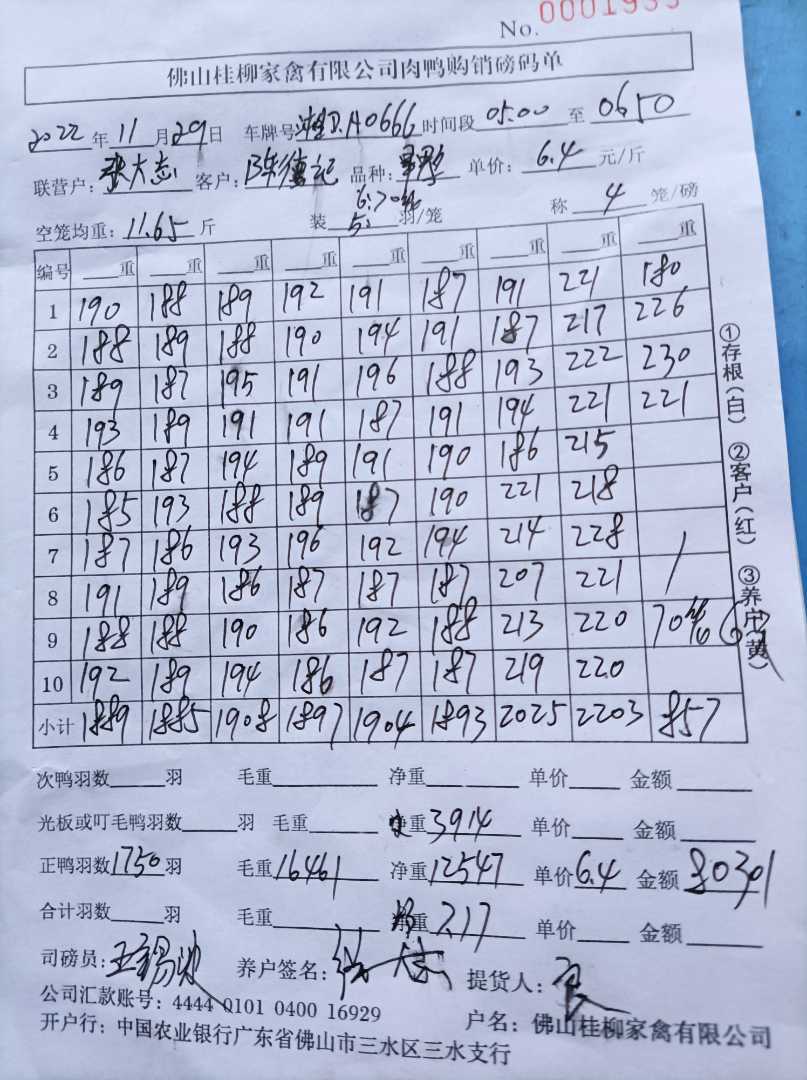 No. 0001935
佛山桂柳家禽有限公司肉鸭购销磅码单
2022年11月29日 车牌号 D.A0666 时间段 05:00 至 0650
联营户: 张大志 客户: 陈德记 品种: 单价: 6.4 元/斤
空笼均重: 11.65 斤 装 5 羽/笼 称 4 笼/磅
编号 重 重 重 重 重 重 重 重 重
1 190 188 189 192 191 187 191 221 180
2 188 189 188 190 194 191 187 217 226
3 189 187 195 191 196 188 193 222 230
4 193 189 191 191 187 191 194 221 221
5 186 187 194 189 191 190 186 215
6 185 193 188 189 187 190 221 218
7 187 186 193 196 192 194 214 228
8 191 189 186 187 187 187 207 221
9 188 188 190 186 192 188 213 220 70
10 192 189 194 186 187 187 219 220
小计 1889 1885 1908 1897 1904 1893 2025 2203 857
①存根(白) ②客户(红) ③养户(黄)
次鸭羽数 羽 毛重 净重 单价 金额
光板或叮毛鸭羽数 羽 毛重 重 3914 单价 金额
正鸭羽数 1750 羽 毛重 16461 净重 12547 单价 6.4 金额 80301
合计羽数 羽 毛重 重 7.17 单价 金额
司磅员: 王锡 养户签名: 张大志 提货人:
公司汇款账号: 4444 0101 0400 16929
户名: 佛山桂柳家禽有限公司
开户行: 中国农业银行广东省佛山市三水区三水支行